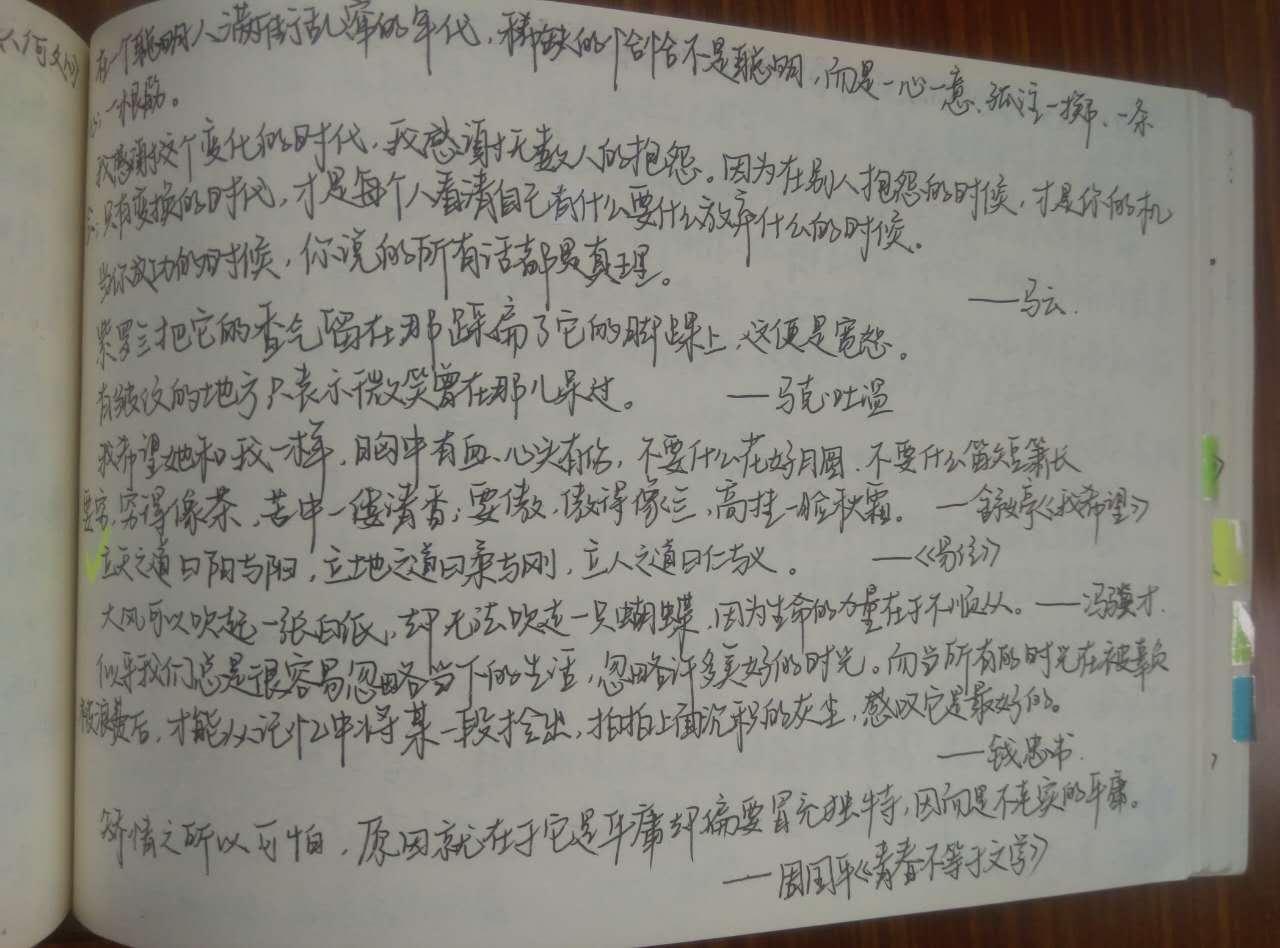 不何文问
在一个聪明人满街乱窜的年代,稀缺的恰恰不是聪明,而是一心一意、孤注一掷、一条
心,一根筋。
我感谢这个变化的时代,我感谢无数人的抱怨。因为在别人抱怨的时候,才是你的机
会;只有变换的时代,才是每个人看清自己有什么要什么放弃什么的时候。
当你成功的时候,你说的所有话都是真理。
——马云.
紫罗兰把它的香气留在那踩扁了它的脚踝上,这便是宽恕。
有皱纹的地方只表示微笑曾在那儿呆过。 ——马克·吐温
我希望她和我一样,胸中有血、心头有伤,不要什么花好月圆、不要什么笛短箫长
要穷,穷得像茶,苦中一缕清香;要傲,傲得像兰,高挂一脸秋霜。 ——舒婷《我希望》
立天之道曰阴与阳,立地之道曰柔与刚,立人之道曰仁与义。 ——《易经》
大风可以吹起一张白纸,却无法吹走一只蝴蝶,因为生命的力量在于不顺从。——冯骥才.
似乎我们总是很容易忽略当下的生活,忽略许多美好的时光。而当所有的时光在被辜负
被浪费后,才能从记忆中将某一段拎出,拍拍上面沉积的灰尘,感叹它是最好的。
——钱忠书.
矫情之所以可怕,原因就在于它是平庸却偏要冒充独特,因而是不老实的平庸。
——周国平《青春不等于文学》